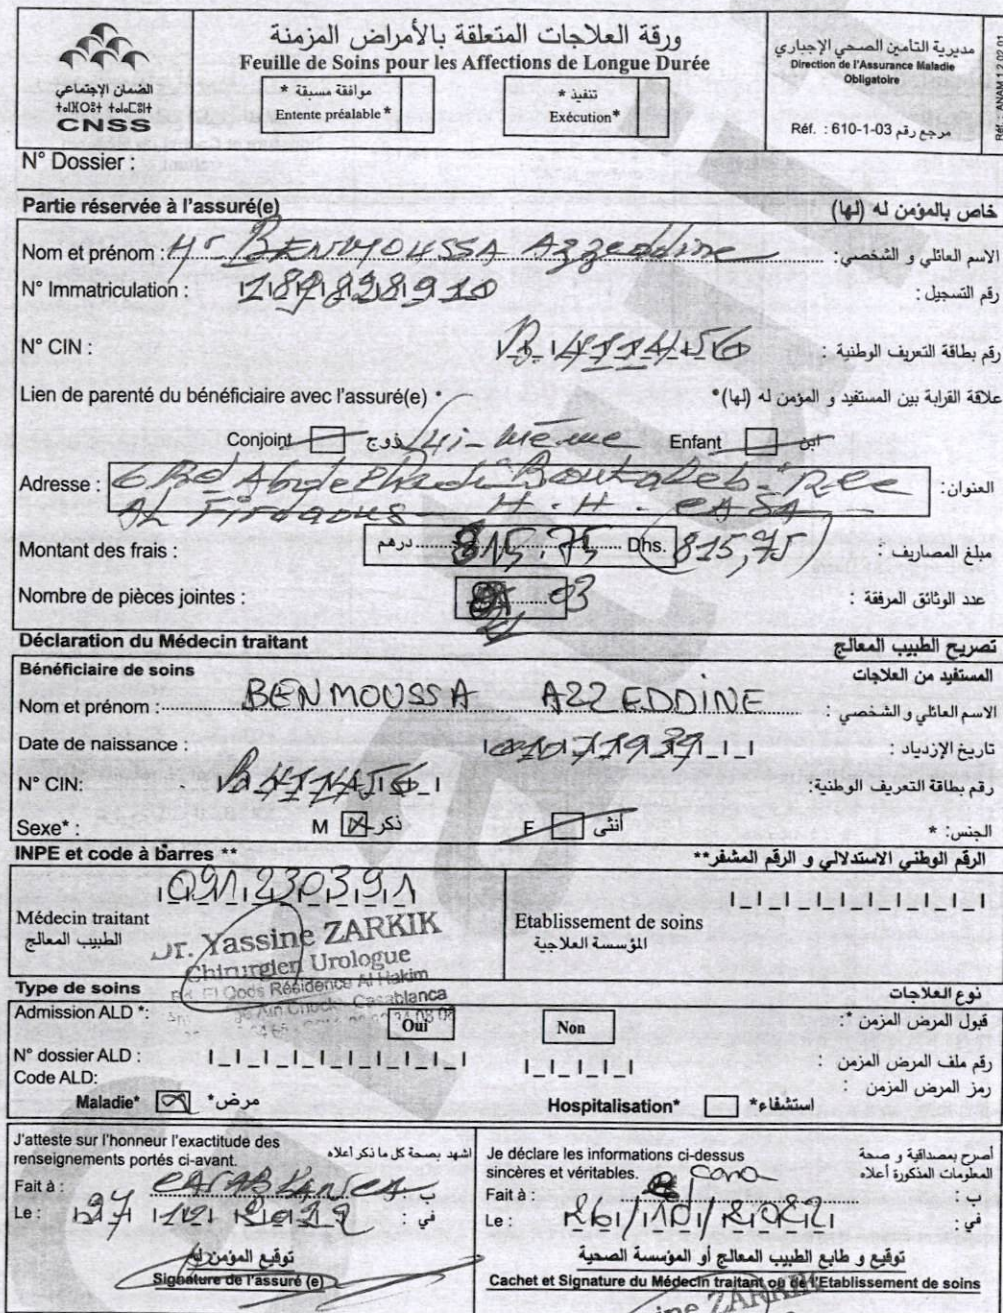 ورقة العلاجات المتعلقة بالأمراض المزمنة
Feuille de Soins pour les Affections de Longue Durée
الضمان الإجتماعي
CNSS
موافقة مسبقة *
Entente préalable*
تنفيذ *
Exécution*
مديرية التأمين الصحي الإجباري
Direction de l'Assurance Maladie
Obligatoire
Réf. : 610-1-03 مرجع رقم
N° Dossier :
Partie réservée à l'assuré(e) خاص بالمؤمن له (لها)
Nom et prénom : Mr BENMOUSSA Azzeddine الاسم العائلي و الشخصي :
N° Immatriculation : رقم التسجيل :
N° CIN : B 411456 رقم بطاقة التعريف الوطنية :
Lien de parenté du bénéficiaire avec l'assuré(e) * علاقة القرابة بين المستفيد و المؤمن له (لها)*
Conjoint زوج Lui-même Enfant ابن
Adresse : 6 Bd Abdelhadi Boutaleb العنوان:
AL Firdaous H.H. CASA
Montant des frais : درهم Dhs. 815,75 مبلغ المصاريف :
Nombre de pièces jointes : 03 عدد الوثائق المرفقة :
Déclaration du Médecin traitant تصريح الطبيب المعالج
Bénéficiaire de soins المستفيد من العلاجات
Nom et prénom : BENMOUSSA AZZEDDINE الاسم العائلي و الشخصي :
Date de naissance : 1939 تاريخ الإزدياد :
N° CIN: B 411456 رقم بطاقة التعريف الوطنية:
Sexe* : M ذكر F أنثى الجنس: *
INPE et code à barres ** الرقم الوطني الاستدلالي و الرقم المشفر**
091230391
Médecin traitant
الطبيب المعالج
Dr. Yassine ZARKIK
Chirurgien Urologue
Bd. El Qods Résidence Al Hakim
Ain Chock, Casablanca
Etablissement de soins
المؤسسة العلاجية
Type de soins نوع العلاجات
Admission ALD *: Oui Non قبول المرض المزمن *:
N° dossier ALD : رقم ملف المرض المزمن :
Code ALD: رمز المرض المزمن :
Maladie* مرض* Hospitalisation* استشفاء*
J'atteste sur l'honneur l'exactitude des
renseignements portés ci-avant. اشهد بصحة كل ما ذكر أعلاه
Fait à : Casablanca ب :
Le : في :
توقيع المؤمن له
Signature de l'assuré (e)
Je déclare les informations ci-dessus
sincères et véritables.
أصرح بمصداقية و صحة
المعلومات المذكورة أعلاه
Fait à : Casa ب :
Le : في :
توقيع و طابع الطبيب المعالج أو المؤسسة الصحية
Cachet et Signature du Médecin traitant ou de l'Etablissement de soins
ZARKIK